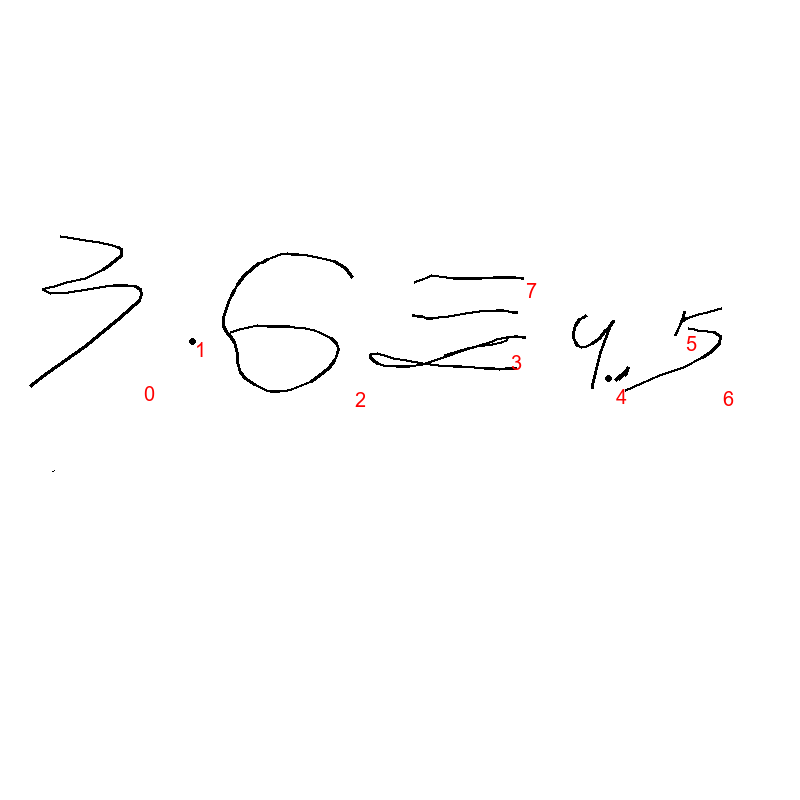 3.6 ≡ 4.5
0 1 2 7 3 4 5 6